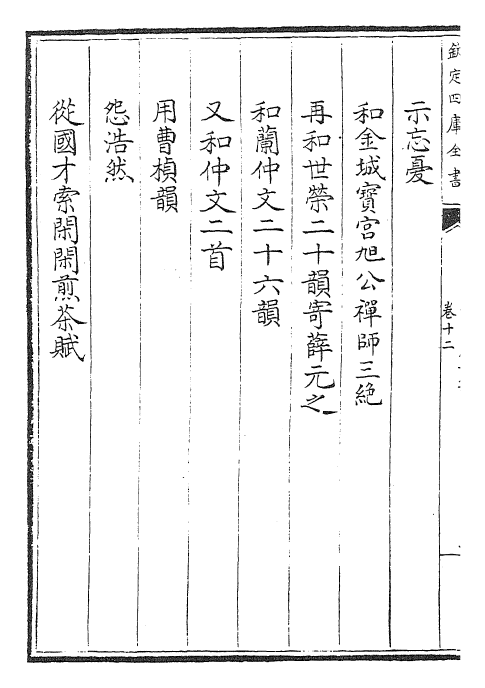 欽定四庫全書
卷十二
示忘憂
和金城寶宮旭公禪師三絶
再和世榮二十韻寄薛元之
和蘭仲文二十六韻
又和仲文二首
用曹楨韻
怨浩然
從國才索閑閑煎茶賦